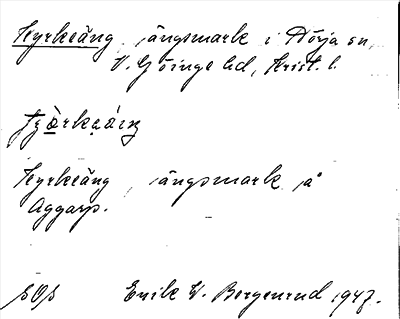 Kyrkeäng, ängsmark i Nörja sn,
V. Göinge hd, Krist. l.
Kyrkeäng, ängsmark på
Aggarp.
SOS Emik W. Bergenrud 1947.